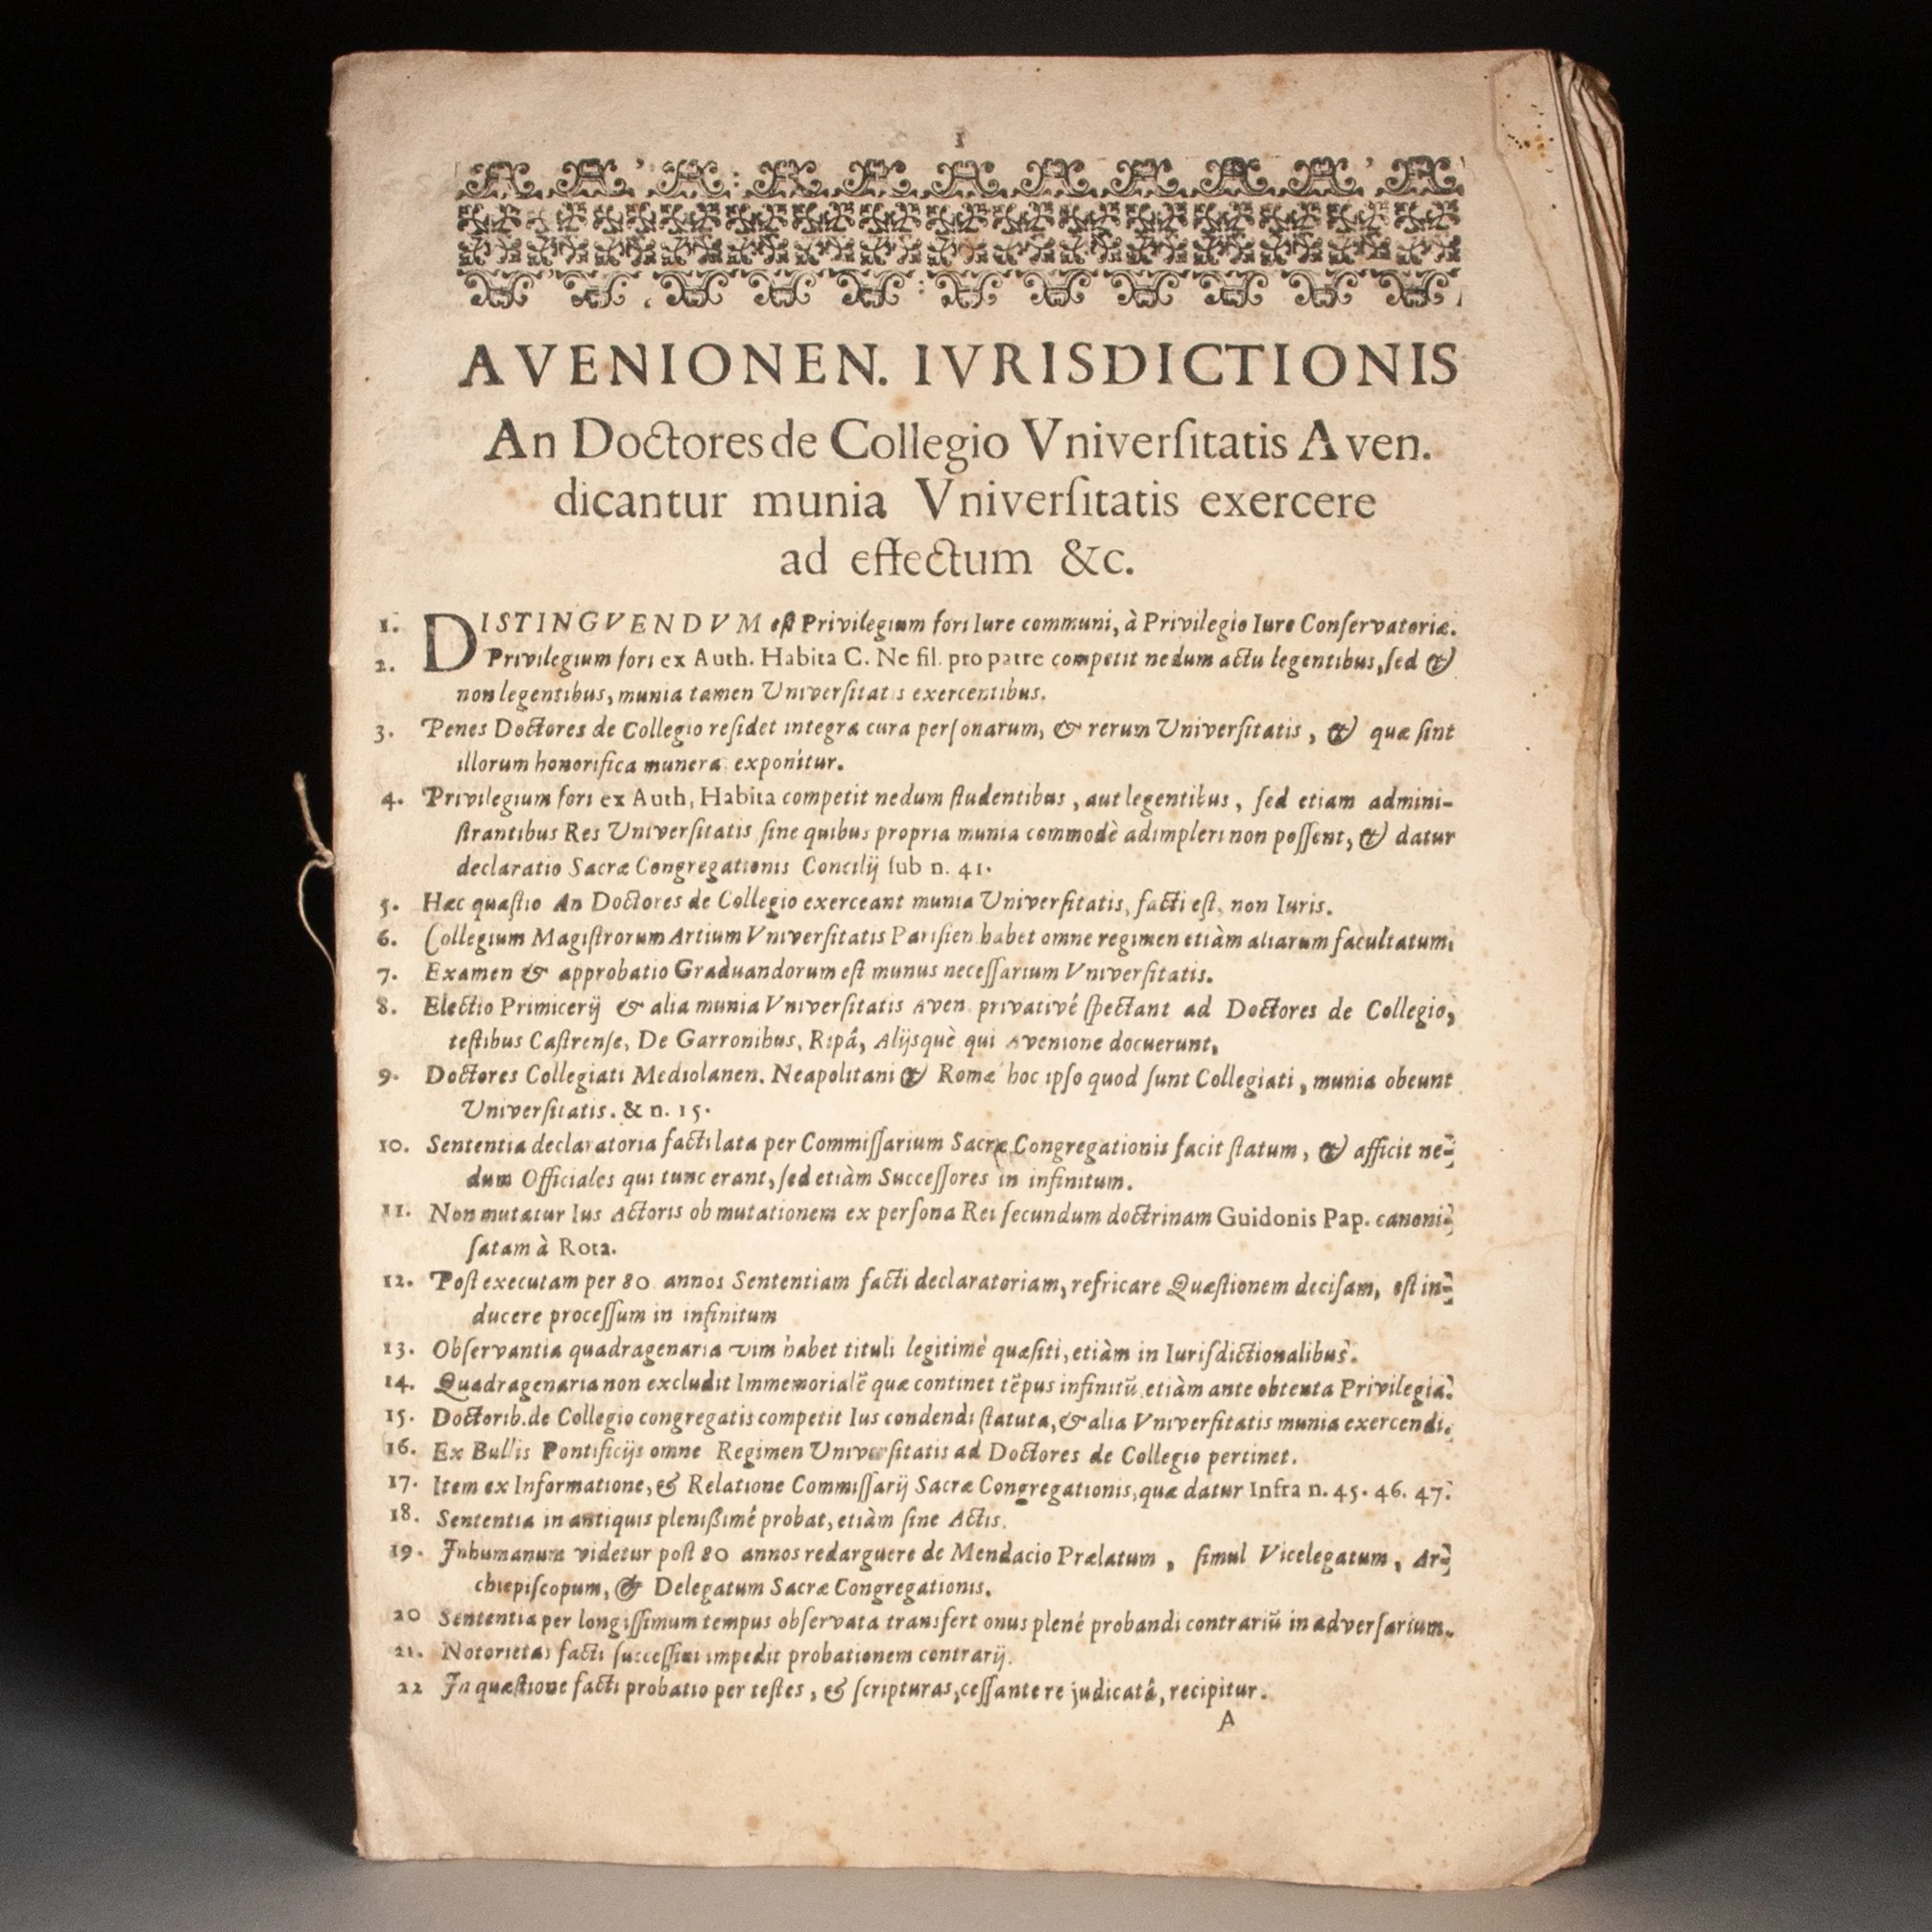 1
AVENIONEN. IVRISDICTIONIS
An Doctores de Collegio Vniverſitatis Aven.
dicantur munia Vniverſitatis exercere
ad effectum &c.
1. DISTINGVENDVM eſt Privilegium fori Iure communi, à Privilegio Iure Conſervatoriæ.
2. Privilegium fori ex Auth. Habita C. Ne fil. pro patre competit nedum actu legentibus, ſed &
non legentibus, munia tamen Univerſitatis exercentibus.
3. Penes Doctores de Collegio reſidet integra cura perſonarum, & rerum Univerſitatis, & quæ ſint
illorum honorifica munera exponitur.
4. Privilegium fori ex Auth, Habita competit nedum ſtudentibus, aut legentibus, ſed etiam admini-
ſtrantibus Res Univerſitatis ſine quibus propria munia commodè adimpleri non poſſent, & datur
declaratio Sacræ Congregationis Concilij ſub n. 41.
5. Hæc quæſtio An Doctores de Collegio exerceant munia Univerſitatis, facti eſt, non Iuris.
6. Collegium Magiſtrorum Artium Vniverſitatis Pariſien habet omne regimen etiàm aliarum facultatum.
7. Examen & approbatio Graduandorum eſt munus neceſſarium Vniverſitatis.
8. Electio Primicerij & alia munia Vniverſitatis Aven. privativé ſpectant ad Doctores de Collegio,
teſtibus Caſtrenſe, De Garronibus, Ripâ, Alijsquè qui Avenione docuerunt.
9. Doctores Collegiati Mediolanen. Neapolitani & Romæ hoc ipſo quod ſunt Collegiati, munia obeunt
Univerſitatis. & n. 15.
10. Sententia declaratoria facti lata per Commiſſarium Sacræ Congregationis facit ſtatum, & afficit ne-
dum Officiales qui tunc erant, ſed etiàm Succeſſores in infinitum.
11. Non mutatur Ius Actoris ob mutationem ex perſona Rei ſecundum doctrinam Guidonis Pap. canoni-
ſatam à Rota.
12. Poſt executam per 80 annos Sententiam facti declaratoriam, refricare Quæſtionem deciſam, eſt in-
ducere proceſſum in infinitum
13. Obſervantia quadragenaria vim habet tituli legitimè quæſiti, etiàm in Iuriſdictionalibus.
14. Quadragenaria non excludit Immemorialẽ quæ continet tẽpus infinitũ etiàm ante obtenta Privilegia.
15. Doctorib. de Collegio congregatis competit Ius condendi ſtatuta, & alia Vniverſitatis munia exercendi.
16. Ex Bullis Pontificijs omne Regimen Univerſitatis ad Doctores de Collegio pertinet.
17. Item ex Informatione, & Relatione Commiſſarij Sacræ Congregationis, quæ datur Infra n. 45. 46. 47.
18. Sententia in antiquis pleniſſimé probat, etiàm ſine Actis.
19. Inhumanum videtur poſt 80 annos redarguere de Mendacio Prælatum, ſimul Vicelegatum, Ar-
chiepiſcopum, & Delegatum Sacræ Congregationis.
20 Sententia per longiſſimum tempus obſervata transfert onus plené probandi contrariũ in adverſarium.
21. Notorietas facti ſucceſſivi impedit probationem contrarij.
22 In quæſtione facti probatio per teſtes, & ſcripturas, ceſſante re judicatâ, recipitur.
A